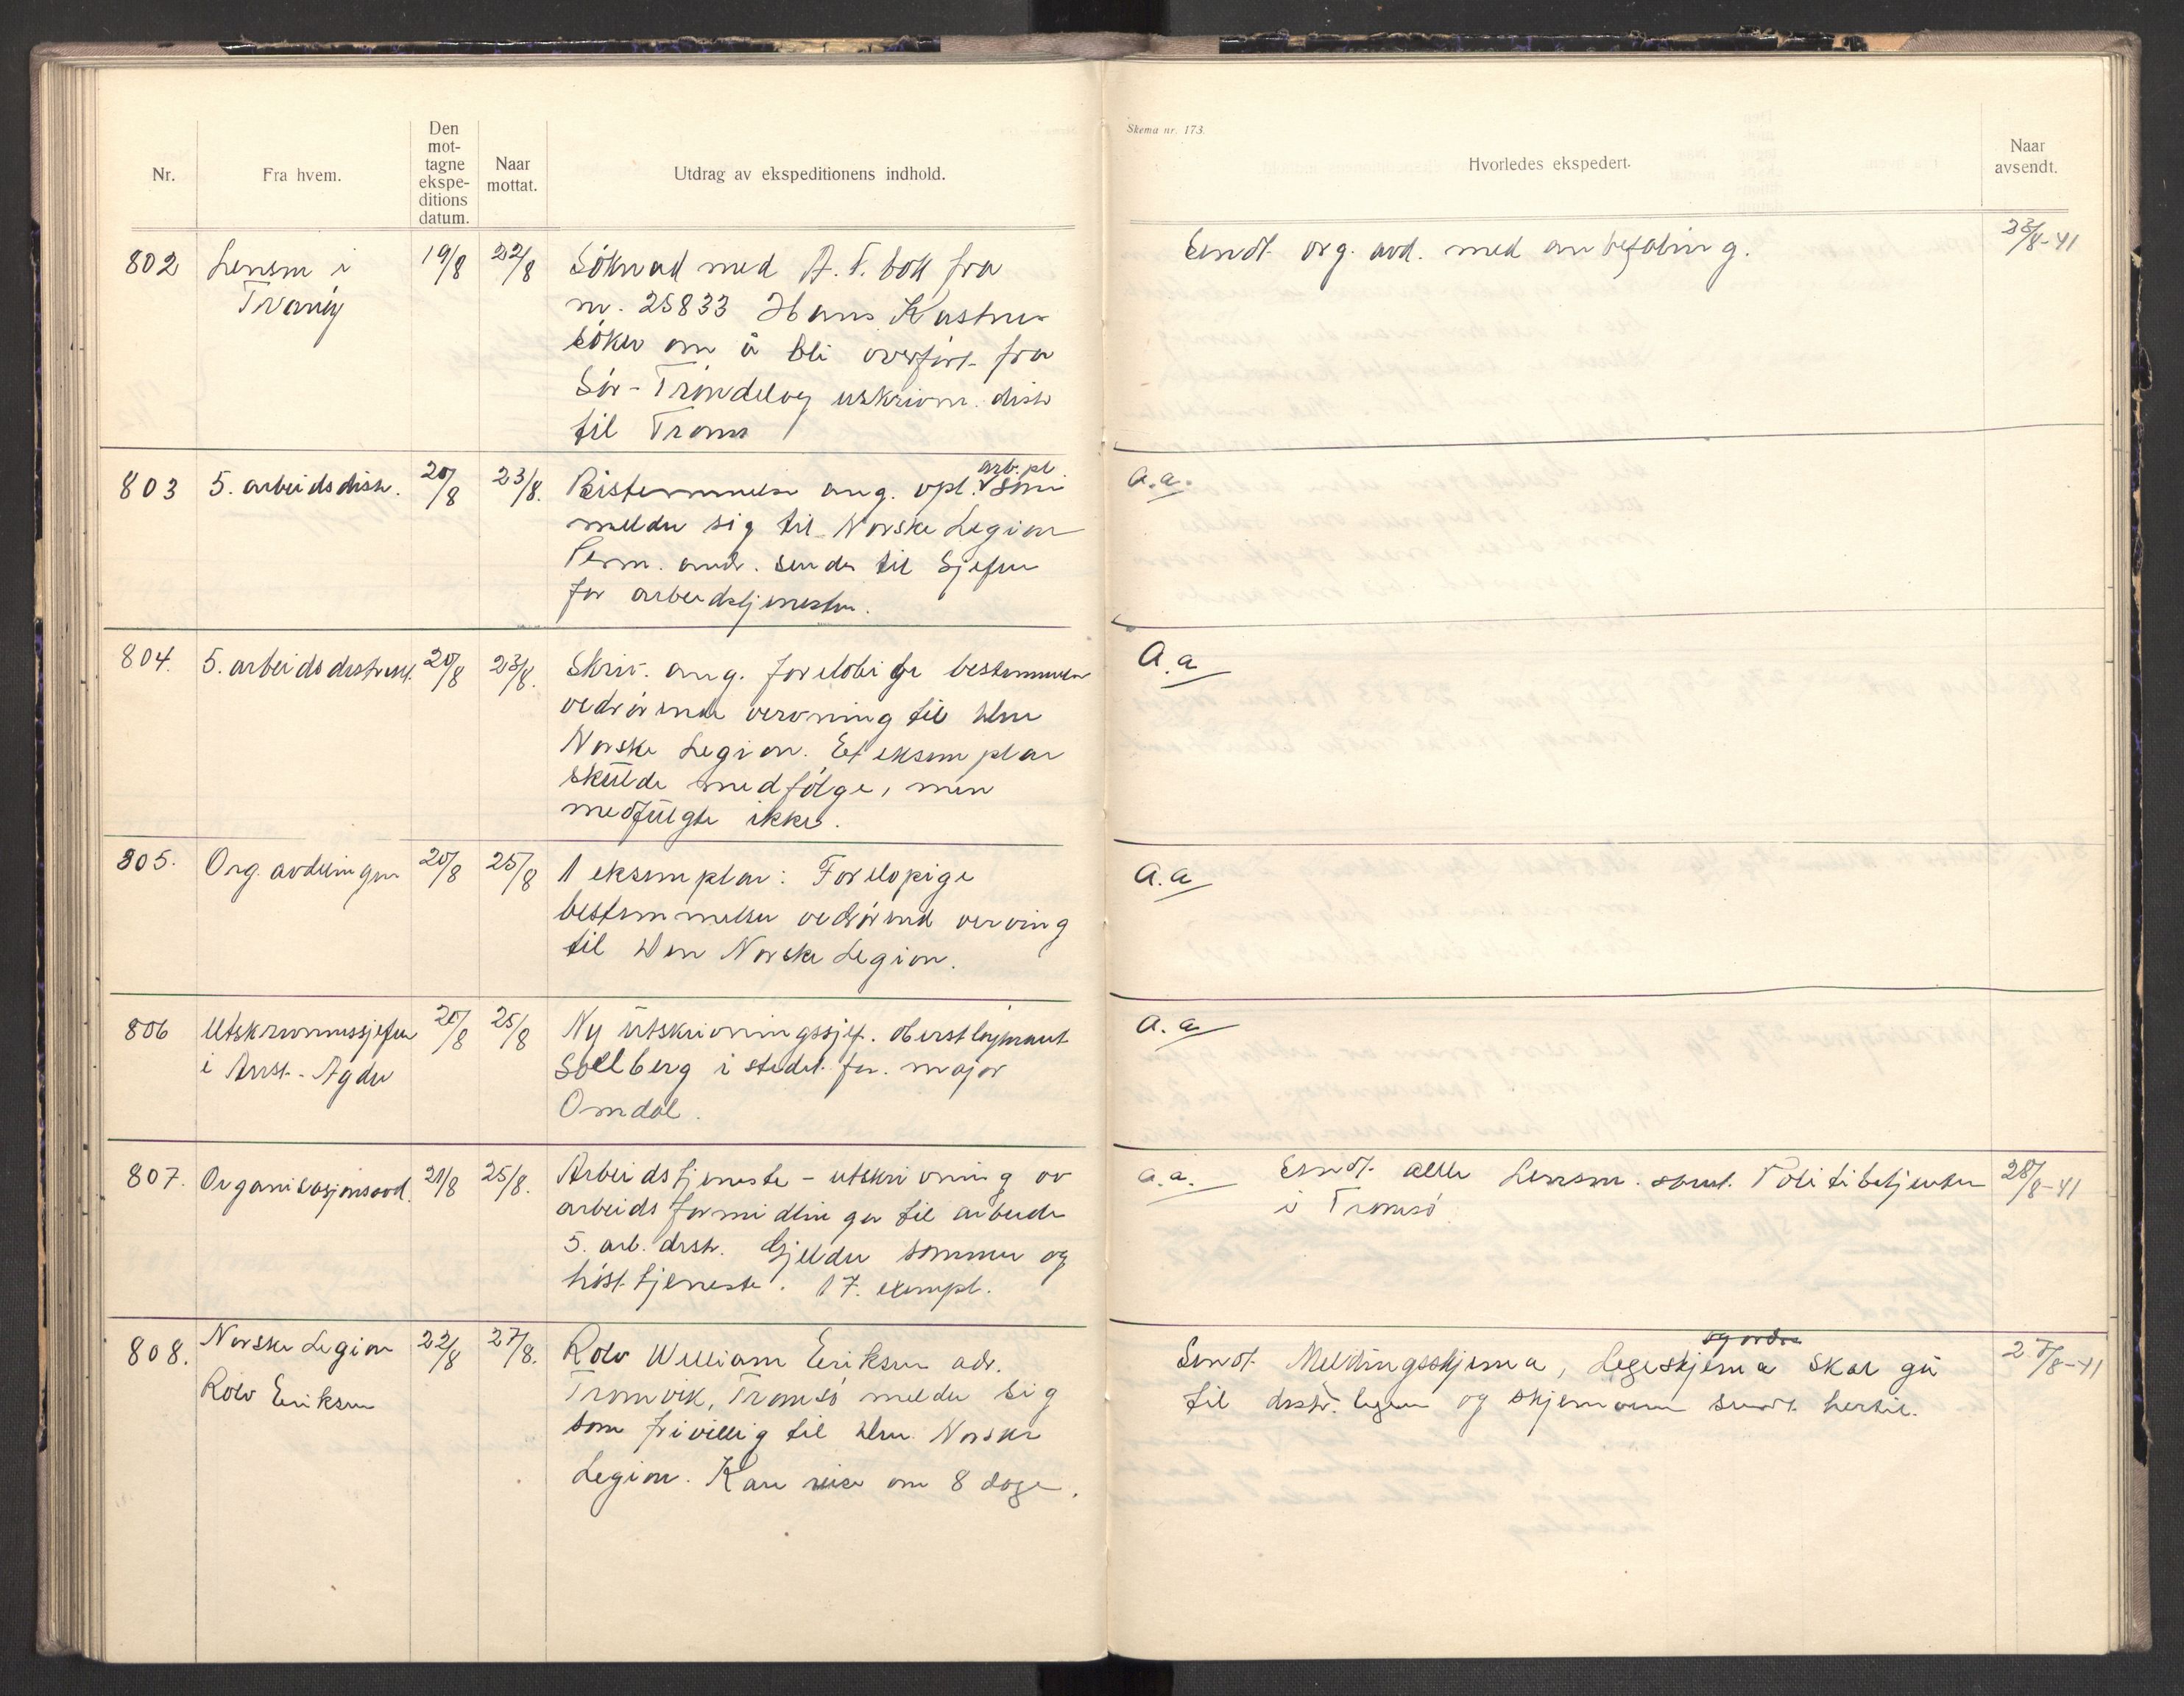 Skema nr. 173.
Nr.
Fra hvem.
Den
mot-
tagne
ekspe-
ditions
datum.
Naar
mottat.
Utdrag av ekspeditionens indhold.
Hvorledes ekspedert.
Naar
avsendt.
802
Lensm i
Tranøy
19/8
22/8
Söknad med A.T. bok fra
nr. 25833 Hans
söker om å bli overfört fra
Sör-Tröndelag utskrivn. distr
til Troms
Sendt org. avd. med anbefaling.
23/8-41
803
5. arbeidsdistr.
20/8
23/8.
Bestemmelse ang. vpl. arb.pl. som
melder sig til Norske Legion
Perm. andr. sendes til Sjefen
for arbeidstjenesten.
a.a.
804.
5. arbeidsdistrikt.
20/8
23/8.
Skriv. ang. forelöbige bestemmelser
vedrörende verving til den
Norske Legion. Et eksemplar
skulde medfölge, men
medfulgte ikke.
A.a
805.
Org. avdelingen
20/8
25/8
1 eksemplar: Forelöpige
bestemmelser vedrörend verving
til Den Norske Legion.
A.a
806
Utskrivningssjefen
i Aust-Agder
20/8
25/8
Ny utskrivningssjef. oberstlöytnant
Sollberg i stedet for. major
Omdal.
a.a
807.
Organisasjonsavd.
21/8
25/8.
Arbeidstjeneste - utskrivning av
arbeidsformidlinger til arbeide
5. arb. distr. Gjelder sommer og
hösttjeneste. 17. exempl.
a.a.
Sendt alle Lensm. samt. Politibetjenten
i Tromsö
28/8-41
808.
Norske Legion
Rolv Eriksen
22/8
27/8.
Rolv William Eriksen adr.
Tromvik, Tromsö melder sig
som frivillig til den Norske
Legion. Kan reise om 8 dage.
og andre
Sendt Meldingsskjema, Legeskjema skal gå
til distr. legen og skjemaen sendt hertil.
27/8-41